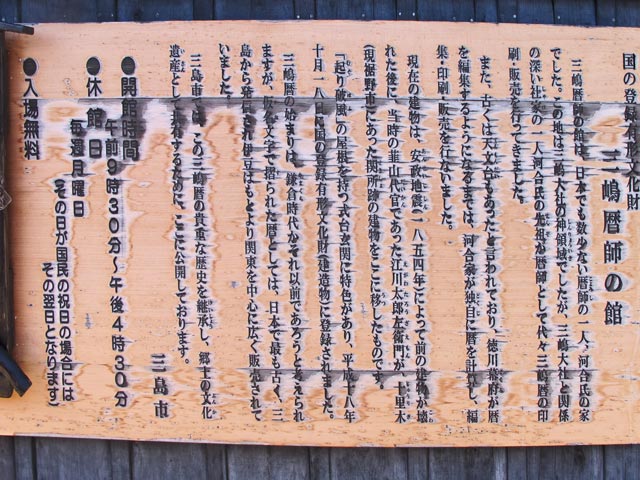 国の登録有形文化財
三嶋暦師の館
三嶋暦師の館は、日本でも数少ない暦師の一人、河合氏の家
でした。この地は三嶋大社の神領域でしたが、三嶋大社と関係
の深い社家の一人河合氏の先祖が暦師として代々三嶋暦の印
刷・販売を行ってきました。
また、古くは天文台もあったと言われており、徳川幕府が暦
を編集するようになるまでは、河合家が独自に暦を計算し、編
集・印刷・販売を行ないました。
現在の建物は、安政地震(一八五四年)によって前の建物が壊
れた後に、当時の韮山代官であった江川太郎左衛門が、十里木
(現裾野市)にあった関所跡の建物をここに移したものです。
「起り破風」の屋根を持つ式台玄関に特色があり、平成十八年
十月一八日に国の登録有形文化財(建造物)に登録されました。
三嶋暦の始まりは、鎌倉時代かそれ以前であろうと考えられ
ますが、仮名文字で摺られた暦としては、日本で最も古く、三
島から発行され伊豆はもとより関東を中心に広く販売されて
いました。
三島市では、この三嶋暦の貴重な歴史を継承し、郷土の文化
遺産として共有するために、ここに公開しております。
三島市
●開館時間
午前9時30分〜午後4時30分
●休館日
毎週月曜日
(その日が国民の祝日の場合には
その翌日となります)
●入場無料